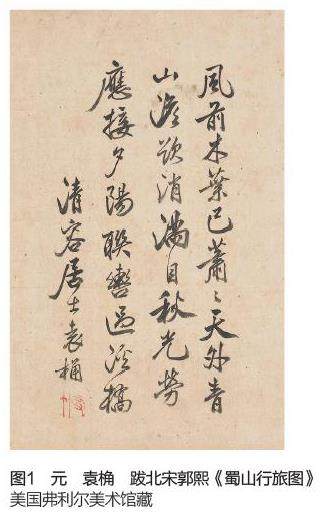 風前木葉已蕭〻天外青
山澹欲消滿目秋光勞
應接夕陽聯轡過溪橋
清容居士袁桷
图1 元 袁桷 跋北宋郭熙《蜀山行旅图》
美国弗利尔美术馆藏